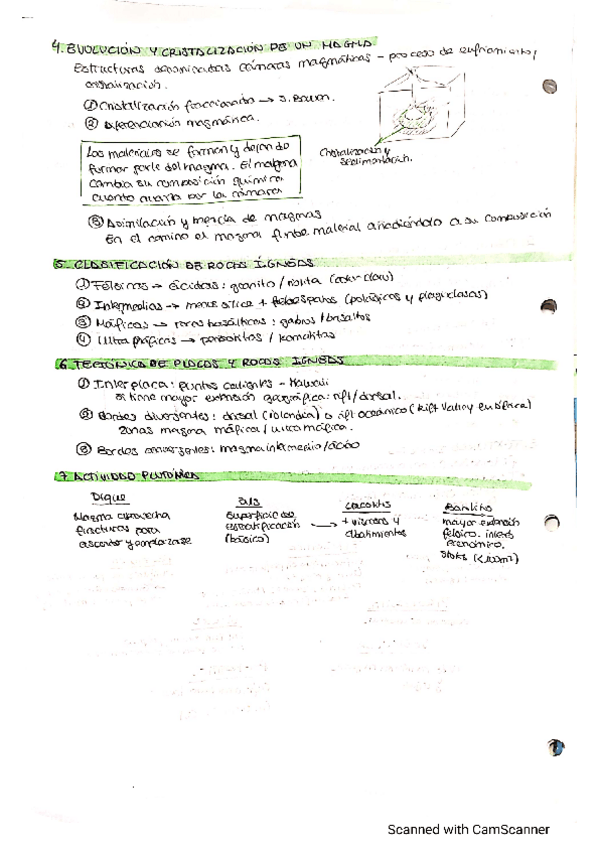 4. EVOLUCIÓN Y CRISTALIZACIÓN DE UN MAGMA
Estructuras denominadas cámaras magmáticas - proceso de enfriamiento/
cristalización.
① Cristalización fraccionada → S. Bowen.
② Diferenciación magmática.
Los materiales se forman y dejan de
formar parte del magma. El magma
cambia su composición química
cuanto por la cámara
Cristalización y
sedimentación.
③ Asimilación y mezcla de magmas
En el camino el magma funde material añadiéndolo a su composición
5. CLASIFICACIÓN DE ROCAS ÍGNEAS
① Félsicas → ácidas: granito / riolita (color claro)
② Intermedias → menos sílice + feldespatos (potásicos y plagioclasas)
③ Máficas → rocas basálticas: gabros / basaltos
④ Ultramáficas → peridotitas / komatitas
6. TECTÓNICA DE PLACAS Y ROCAS ÍGNEAS
① Interplaca: puntos calientes - Hawaii
si tiene mayor extensión geográfica: rift/dorsal.
② Bordes divergentes: dorsal (Islandia) o rift oceánico (Rift Valley en África)
zonas magma máfica/ultramáfica.
③ Bordes convergentes: magma intermedio/ácido
7 ACTIVIDAD PLUTÓNICA
Dique
Magma aprovecha
fracturas para
ascender y emplazarse
Sills
Superficie de
estratificación
(básico)
→
Lacolito
+ viscoso y
abatimientos
Batolito
mayor extensión
félsico. interés
económico.
Stoks (<100km²)
Scanned with CamScanner